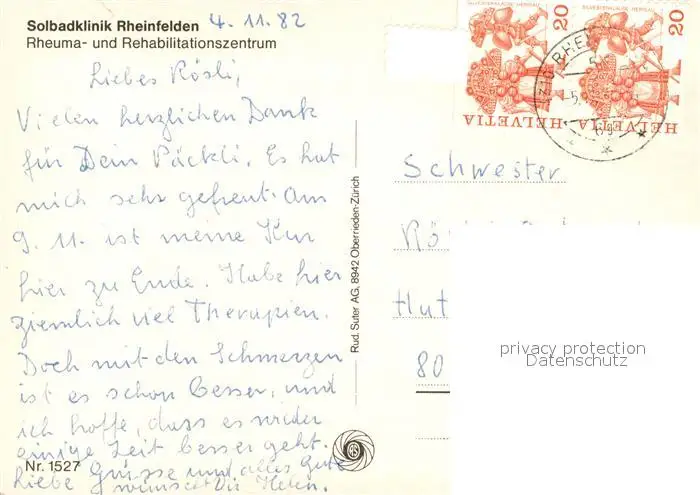 Solbadklinik Rheinfelden 4. 11. 82
Rheuma- und Rehabilitationszentrum
Liebes Rösli,
Vielen herzlichen Dank
für Dein Päckli. Es hat
mich sehr gefreut. Am
9. 11. ist meine Kur
hier zu Ende. Habe hier
ziemlich viel Therapien.
Doch mit den Schmerzen
ist es schon besser, und
ich hoffe, dass es wieder
einige Zeit besser geht.
Liebe Grüsse und alles Gute
wünscht Dir Helen.
Nr. 1527
Rud. Suter AG, 8942 Oberrieden-Zürich
SILVESTERKLÄUSE · HERISAU
20
HELVETIA
SILVESTERKLÄUSE · HERISAU
20
HELVETIA
Schwester
Hut
80
privacy protection
Datenschutz